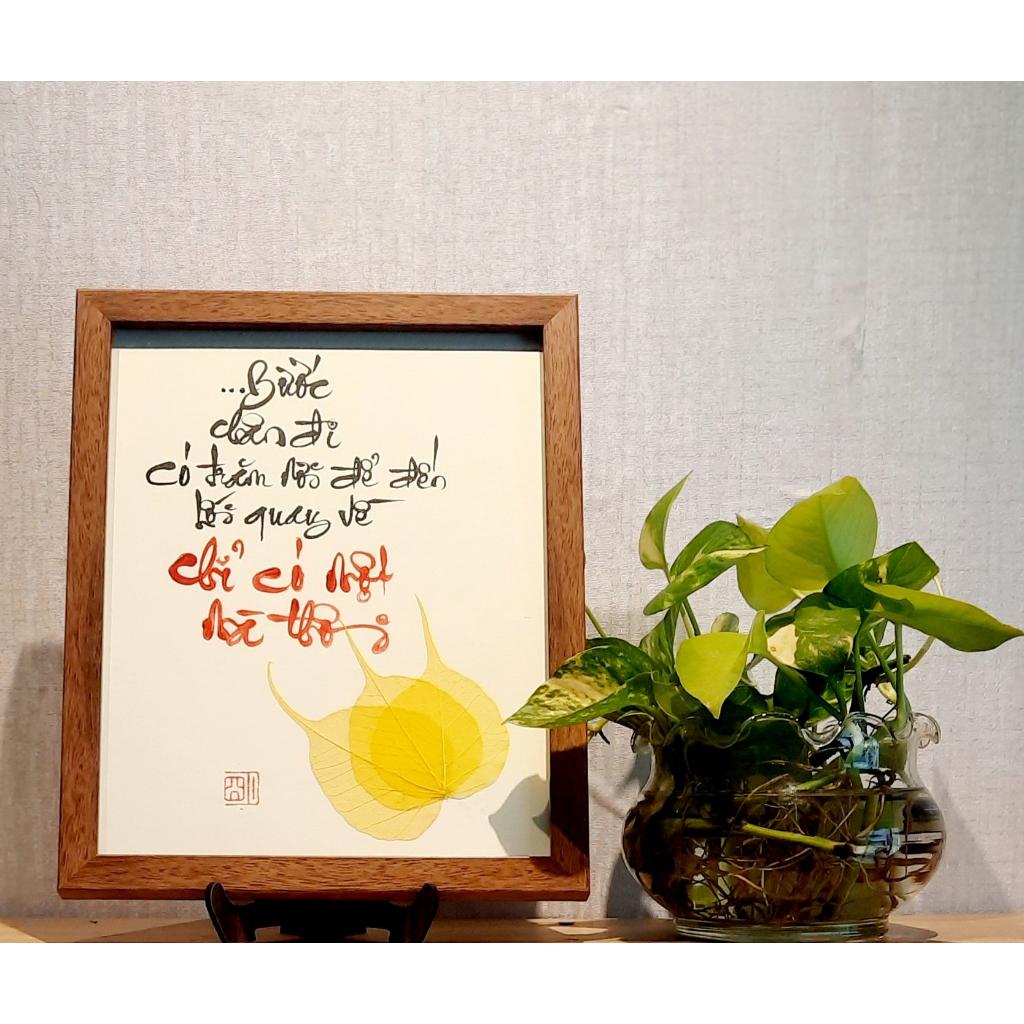 ...Bước
chân đi
có trăm nơi để đến
lối quay về
chỉ có một
mà thôi